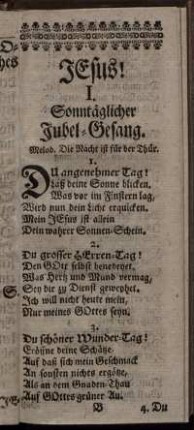 JEsus!
I.
Sonntäglicher
Jubel-Gesang.
Melod. Die Nacht ist für der Thür.
1.
DU angenehmer Tag!
Laß deine Sonne blicken,
Was vor im Finstern lag,
Wird nun dein Licht erquicken.
Mein JEsus ist allein
Dein wahrer Sonnen-Schein.
2.
Du grosser HErren-Tag!
Den GOtt selbst benedeyet,
Was Hertz und Mund vermag,
Sey dir zu Dienst geweyhet.
Ich will nicht heute mein,
Nur meines GOttes seyn.
3.
Du schöner Wunder-Tag!
Eröffne deine Schätze
Auf daß sich mein Geschmack
An sonsten nichts ergötze,
Als an dem Gnaden-Thau
Auf GOttes grüner Au.
B 4. Du